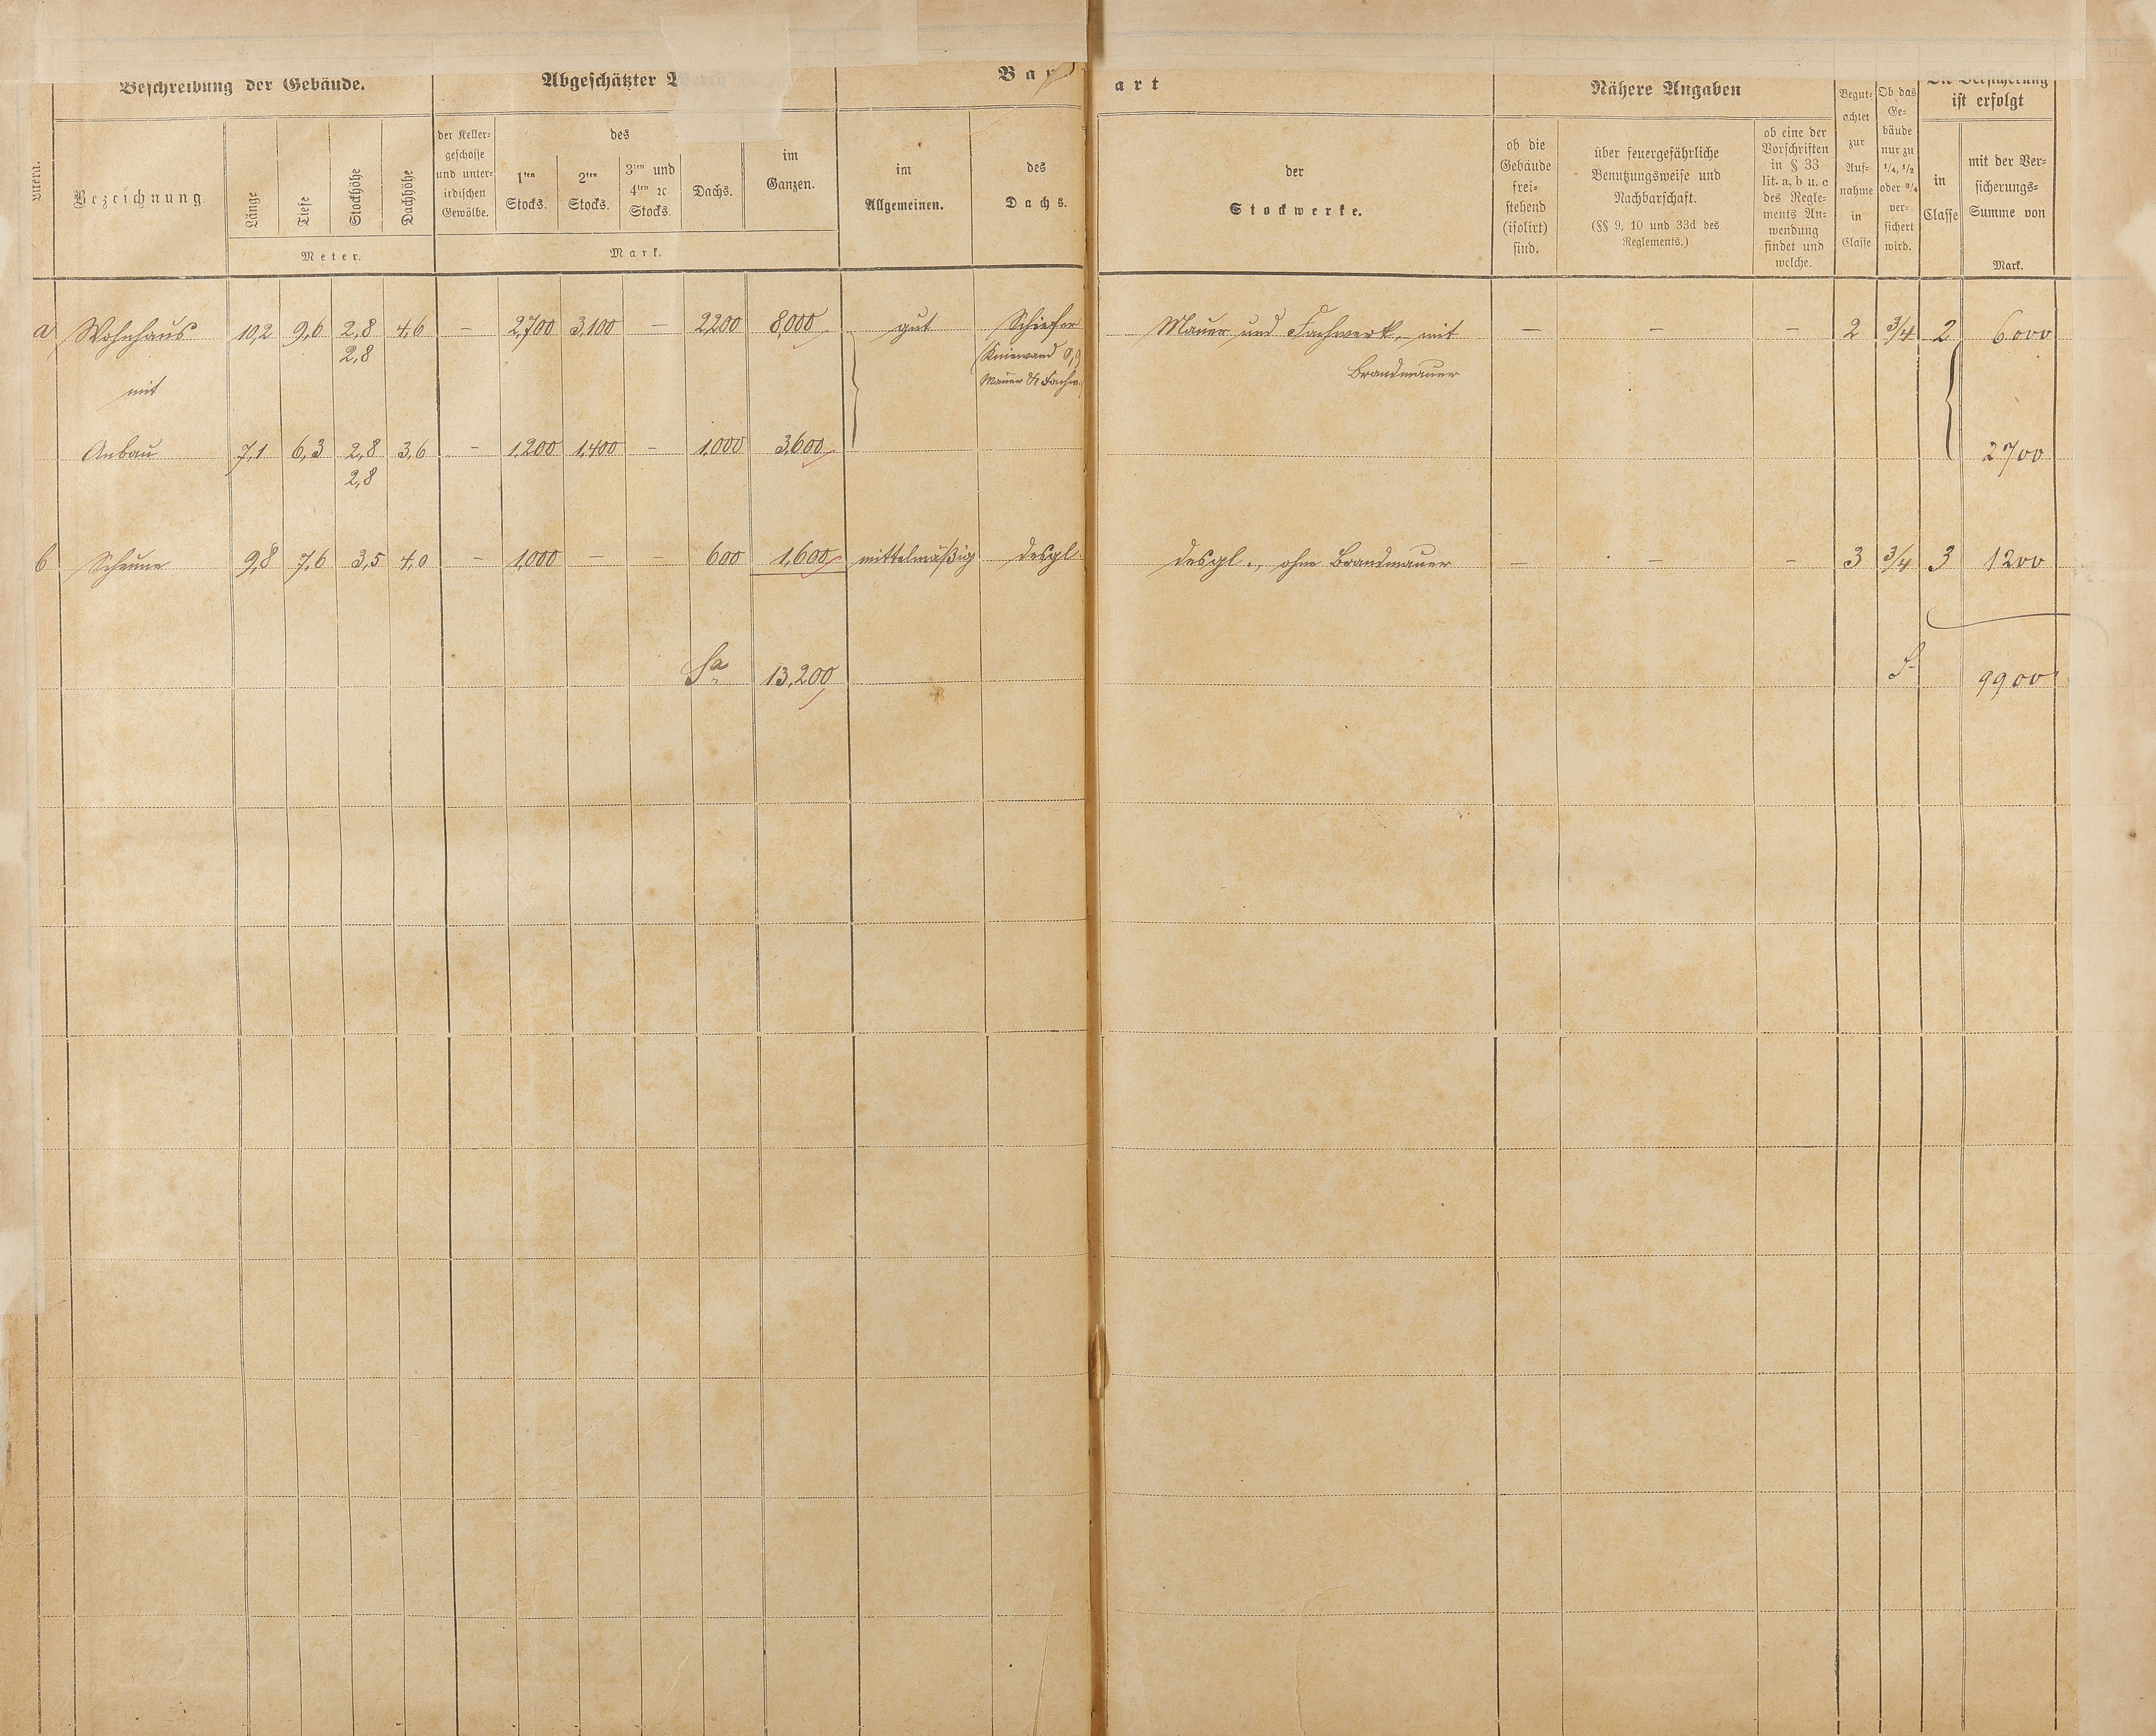 Beschreibung der Gebäude.
Abgeschätzter
Bau
art
Nähere Angaben
Begut-
achtet
zur
Auf-
nahme
in
Classe
Ob das
Ge-
bäude
nur zu
1/4, 1/2
oder 3/4
ver-
sichert
wird.
Die Versicherung
ist erfolgt
Litera.
Bezeichnung
Länge
Tiefe
Stockhöhe
Dachhöhe
Meter.
der Keller-
geschosse
und unter-
irdischen
Gewölbe.
des
1ten
Stocks.
2ten
Stocks.
3ten und
4ten ꝛc.
Stocks.
Dachs.
im
Ganzen.
Mark.
im
Allgemeinen.
des
Dachs.
der
Stockwerke.
ob die
Gebäude
frei-
stehend
(isolirt)
sind.
über feuergefährliche
Benutzungsweise und
Nachbarschaft.
(§§ 9, 10 und 33d des
Reglements.)
ob eine der
Vorschriften
in § 33
lit. a, b u. c
des Regle-
ments An-
wendung
findet und
welche.
in
Classe
mit der Ver-
sicherungs-
Summe von
Mark.
a Wohnhaus 10,2 9,6 2,8 4,6 – 2,700 3,100 – 2200 8,000 gut Schiefer Mauer und Fachwerk, mit – – – 2 3/4 2 6000
2,8 Kniewand 0,9
mit Mauer & Fachw. Brandmauer
Anbau 7,1 6,3 2,8 3,6 – 1,200 1,400 – 1,000 3,600 2700
2,8
b Scheune 9,8 7,6 3,5 4,0 – 1,000 – – 600 1,600 mittelmäßig desgl. desgl., ohne Brandmauer – – – 3 3/4 3 1200
Sa 13,200 S. 9900